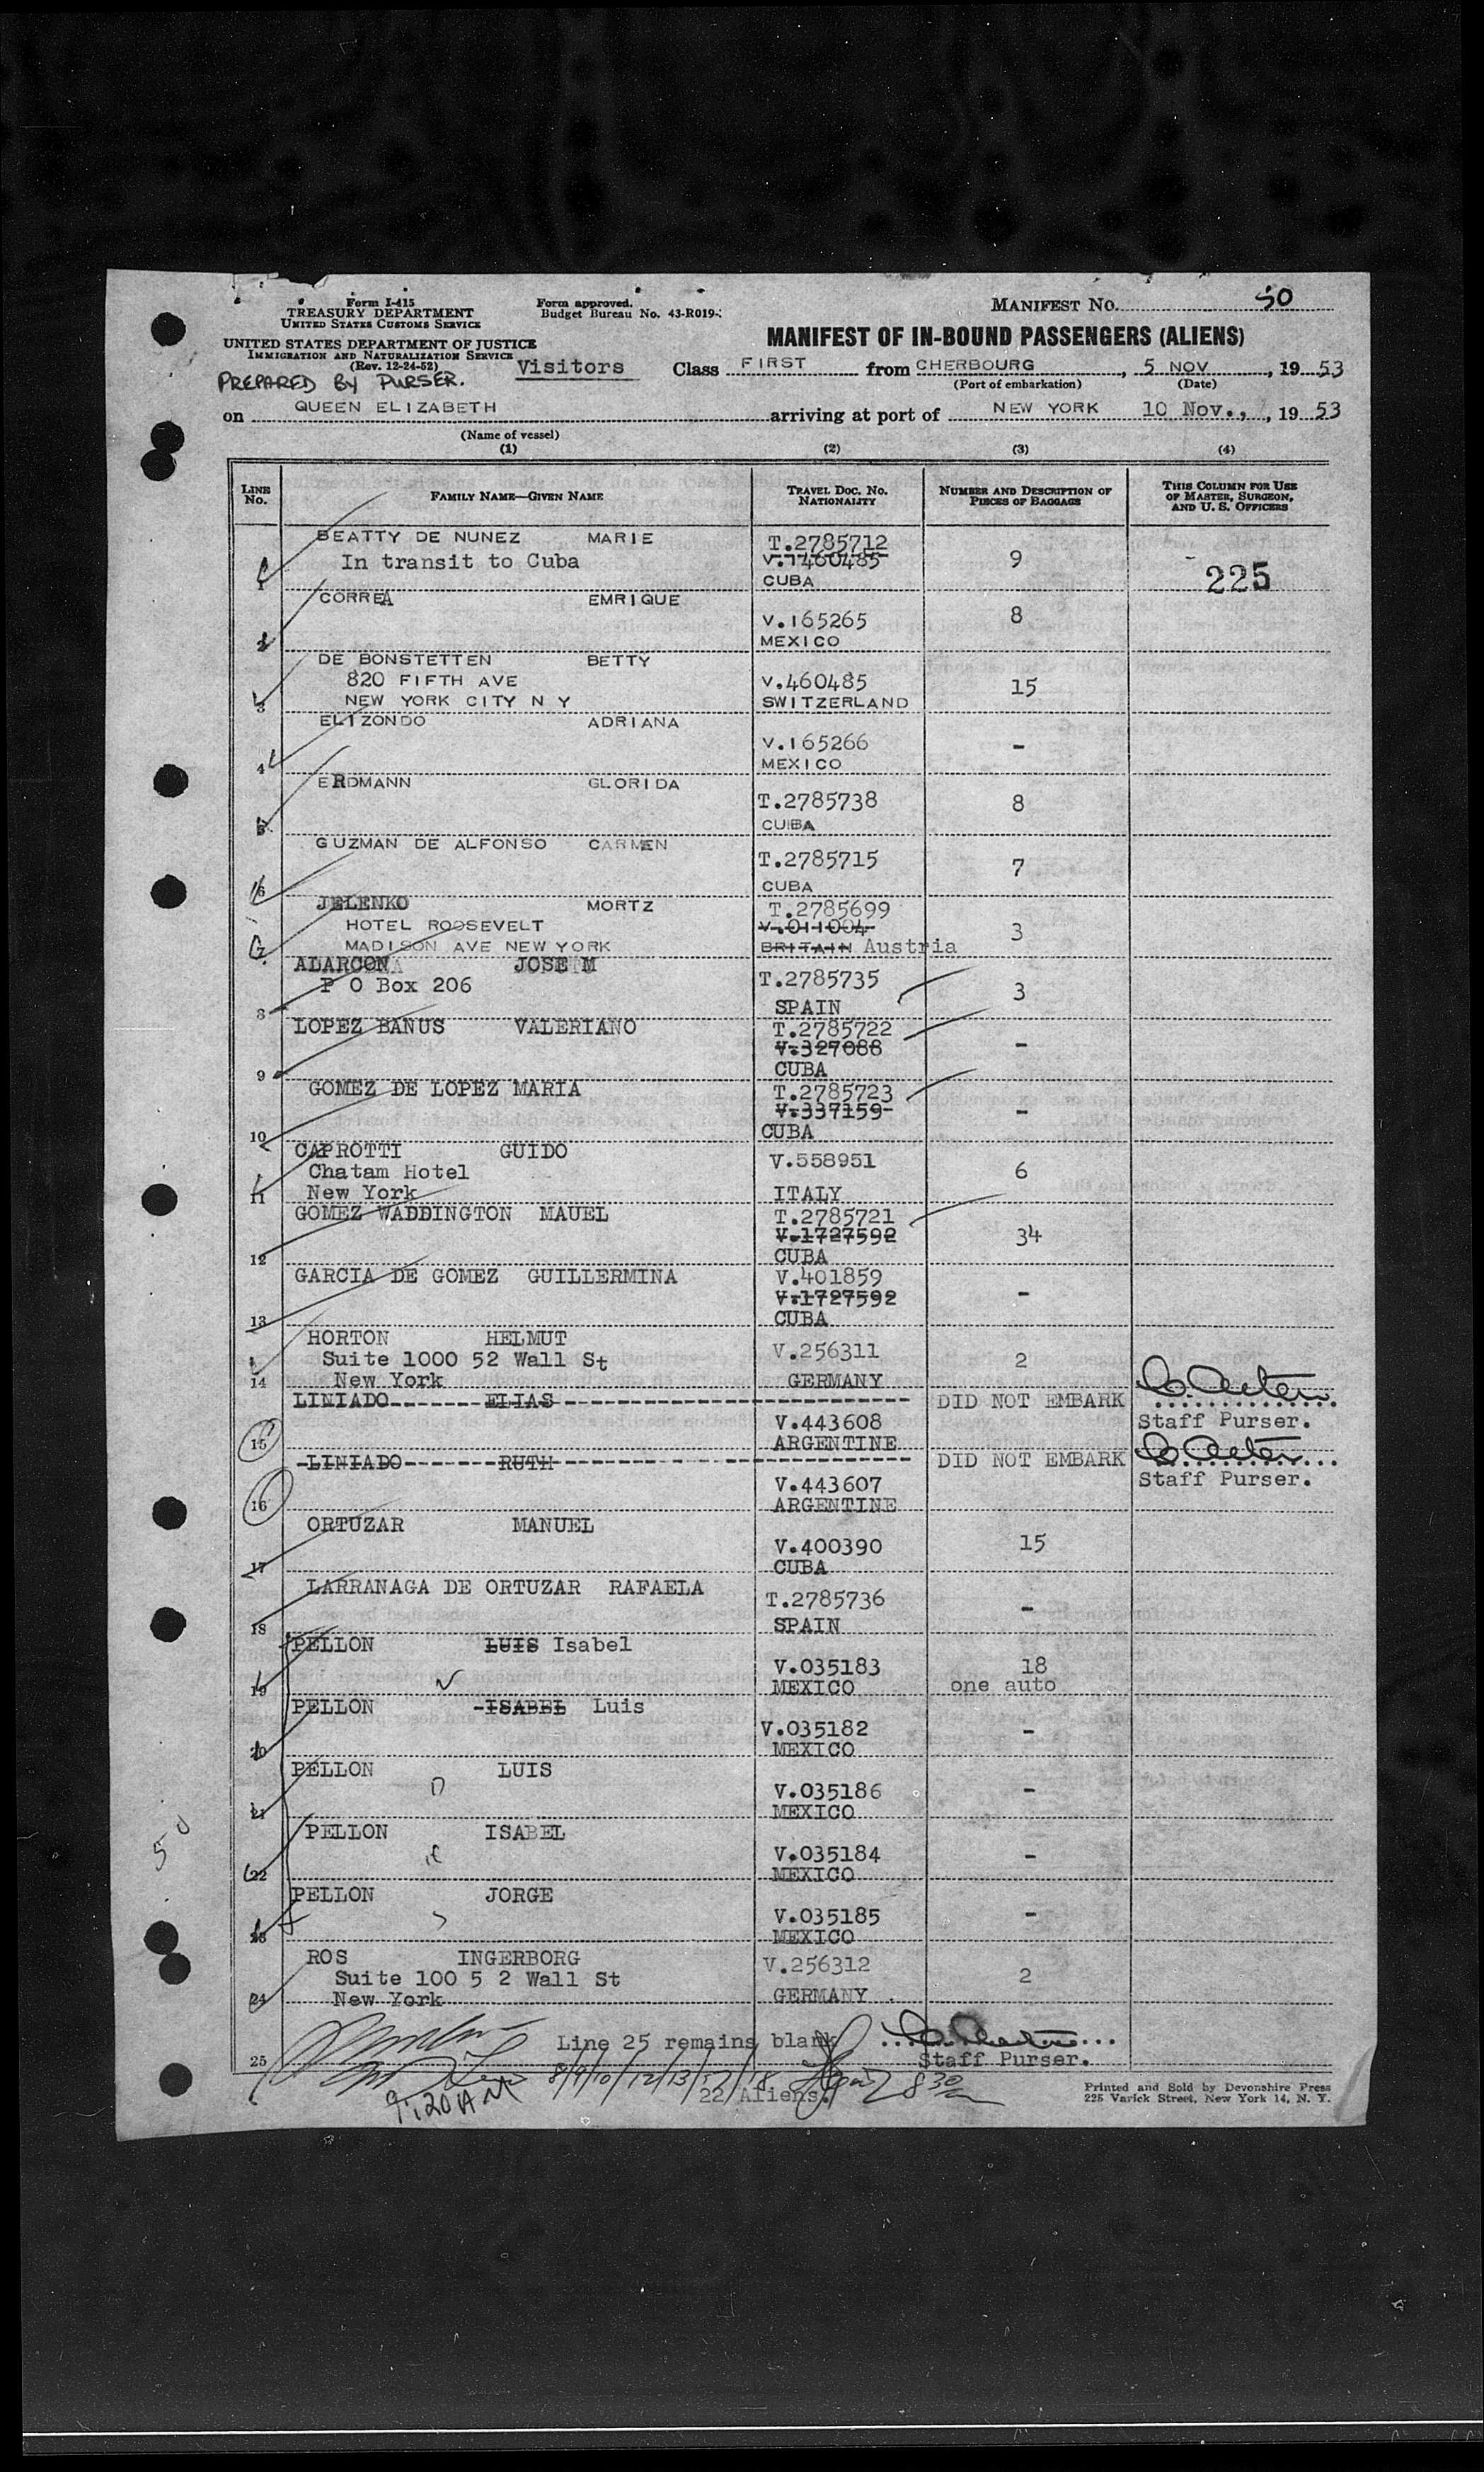 Form I-415
TREASURY DEPARTMENT
UNITED STATES CUSTOMS SERVICE
UNITED STATES DEPARTMENT OF JUSTICE
IMMIGRATION AND NATURALIZATION SERVICE
(Rev. 12-24-52)
PREPARED BY PURSER.
Form approved.
Budget Bureau No. 43-R019-
MANIFEST No. 50
MANIFEST OF IN-BOUND PASSENGERS (ALIENS)
Visitors Class FIRST from CHERBOURG, 5 NOV, 1953
(Port of embarkation) (Date)
on QUEEN ELIZABETH arriving at port of NEW YORK 10 Nov., , 1953
(Name of vessel)
(1) (2) (3) (4)
LINE No. FAMILY NAME—GIVEN NAME TRAVEL DOC. NO. NATIONALITY NUMBER AND DESCRIPTION OF PIECES OF BAGGAGE THIS COLUMN FOR USE OF MASTER, SURGEON, AND U. S. OFFICERS
BEATTY DE NUNEZ MARIE T.2785712
In transit to Cuba V.1460485 9
1 CUBA 225
CORREA EMRIQUE 8
V.165265
2 MEXICO
DE BONSTETTEN BETTY
820 FIFTH AVE V.460485 15
3 NEW YORK CITY N Y SWITZERLAND
ELIZONDO ADRIANA
V.165266 -
4 MEXICO
ERDMANN GLORIDA
T.2785738 8
5 CUBA
GUZMAN DE ALFONSO CARMEN
T.2785715 7
6 CUBA
JELENKO MORTZ T.2785699
HOTEL ROOSEVELT V.011004 3
7 MADISON AVE NEW YORK BRITAIN Austria
ALARCON JOSE M
P O Box 206 T.2785735 3
8 SPAIN
LOPEZ BANUS VALERIANO T.2785722
V.327088 -
9 CUBA
GOMEZ DE LOPEZ MARIA T.2785723
V.337159 -
10 CUBA
CAPROTTI GUIDO V.558951
Chatam Hotel 6
11 New York ITALY
GOMEZ WADDINGTON MAUEL T.2785721
V.1727592 34
12 CUBA
GARCIA DE GOMEZ GUILLERMINA V.401859
V.1727592 -
13 CUBA
HORTON HELMUT
Suite 1000 52 Wall St V.256311 2
14 New York GERMANY
LINIADO ELIAS DID NOT EMBARK
V.443608 Staff Purser.
15 ARGENTINE
LINIADO RUTH DID NOT EMBARK
V.443607 Staff Purser.
16 ARGENTINE
ORTUZAR MANUEL
V.400390 15
17 CUBA
LARRANAGA DE ORTUZAR RAFAELA
T.2785736 -
18 SPAIN
PELLON LUIS Isabel
V.035183 18
19 MEXICO one auto
PELLON ISABEL Luis
V.035182 -
20 MEXICO
PELLON LUIS
V.035186 -
21 MEXICO
PELLON ISABEL
V.035184 -
22 MEXICO
PELLON JORGE
V.035185 -
23 MEXICO
ROS INGERBORG V.256312
Suite 100 5 2 Wall St 2
24 New York GERMANY
Line 25 remains blank
25 Staff Purser.
8/9/10/12/13/17/18
9:20AM 22 Aliens. 8 30
Printed and Sold by Devonshire Press
225 Varick Street, New York 14, N. Y.
50